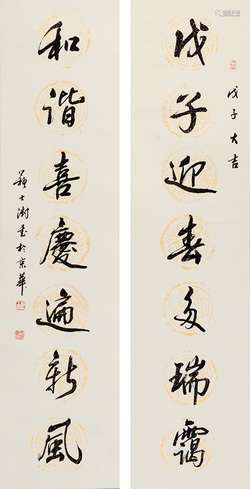 戊子大吉
戊子迎春多瑞靄
和谐喜慶遍新風
蘇士澍書於京華